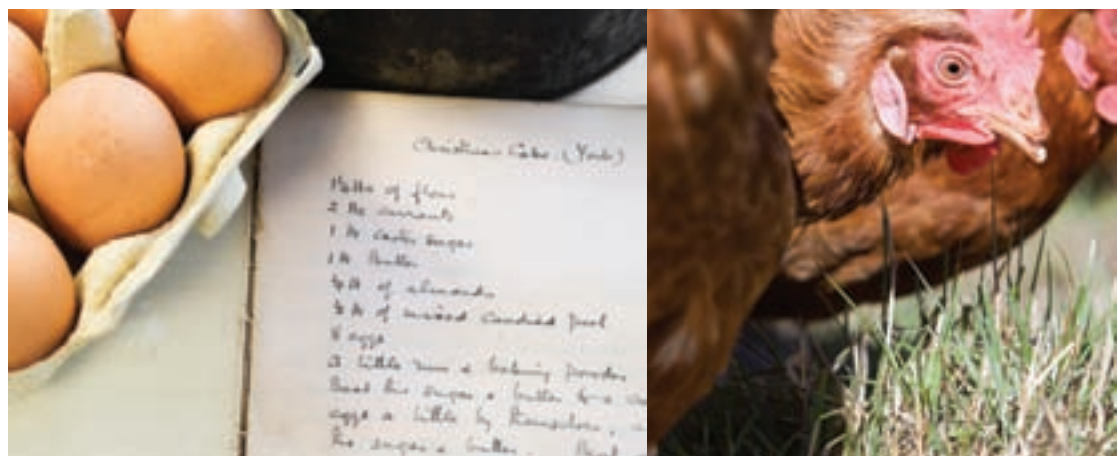 Christmas Cake. (York)
1½ lbs of flour
2 lbs currants
1 lb castor sugar
1 lb butter
¼ lb of almonds
lb of mixed candied peel
8 eggs
A little rum & baking powder
Beat the sugar & butter to a
eggs a little by themselves,
the sugar & butter. Beat